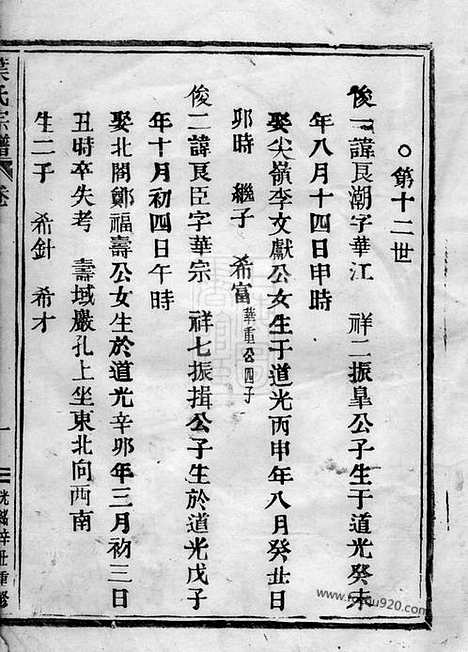 ○第十二世
俊一諱良潮字華江 祥二振臯公子生于道光癸未
年八月十四日申時
娶尖嶺李文獻公女生于道光丙申年八月癸丑日
卯時 繼子 希富華重公四子
俊二諱良臣字華宗 祥七振揖公子生於道光戊子
年十月初四日午時
娶北閣鄭福壽公女生於道光辛卯年三月初三日
丑時卒失考 壽域嚴孔上坐東北向西南
生二子 希針 希才
葉氏宗譜 卷
一
光緒辛丑重修
www.foucu920.com